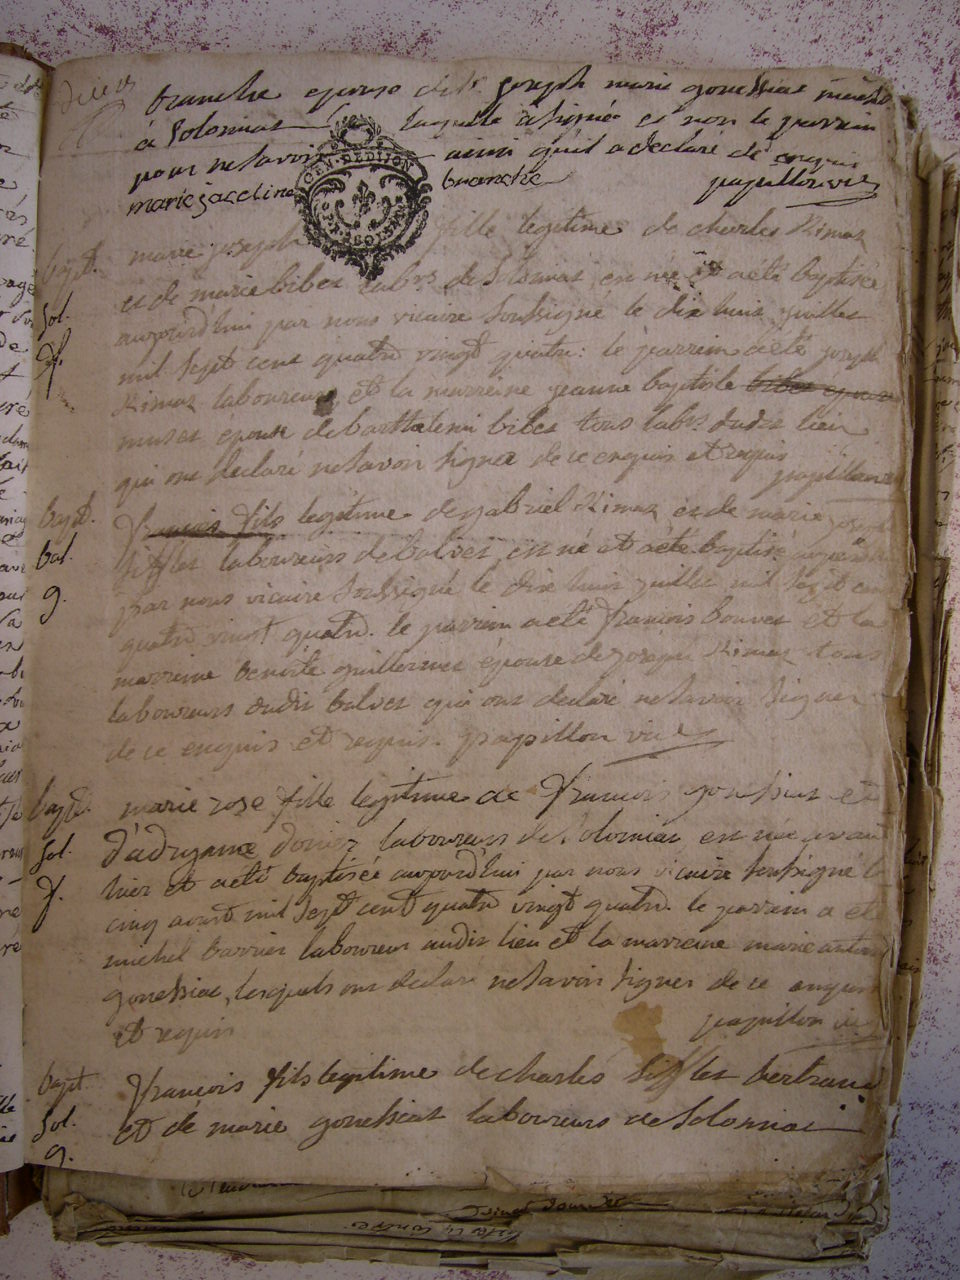 branche epouse de Sr joseph marie gonessiat marchd
à Solomiat laquelle a signé et non le parrain
pour ne savoir ainsi qu'il a declaré de enquis
marie jaceline branche papillon vic
GEN. DE DIJON
bapt. marie joseph fille legitime de charles Rimaz
et de marie bibet labrs de Solomiat, en née et a été baptisée
Sol. aujourd'hui par nous vicaire soussigné le dix huit juillet
f. mil sept cent quatre vingt quatre: le parrein a été joseph
Rimaz laboureur, et la marreine jeanne baptiste
muset epouse de barthelemi bibet tous labrs dudit lieu
qui ont declaré ne savoir signer de ce enquis et requis papillon vic
bapt. françois fils legitime de gabriel Rimaz et de marie joseph
bal. sifflet laboureurs de balvet en né et a été baptisé aujourd'hui
g. par nous vicaire soussigné le dix huit juillet mil sept cent
quatre vingt quatre. le parrein a été françois bouvet et la
marreine benoite guillermet épouse de joseph Rimaz tous
laboureurs dudit balvet qui ont declaré ne savoir signer
de ce enquis et requis. papillon vic
bapt. marie rose fille legitime de françois gonessiat et
Sol. laboureurs de Solomiat en née avant
f. hier et a été baptisée aujourd'hui par nous vicaire soussigné le
cinq aoust mil sept cent quatre vingt quatre. le parrein a été
michel barrier laboureur audit lieu et la marreine marie
gonessiat, lesquels ont declaré ne savoir signer de ce enquis
et requis papillon vic
bapt. françois fils legitime de charles sifflet bertrand
Sol. et de marie gonessiat laboureurs de Solomiat
g.